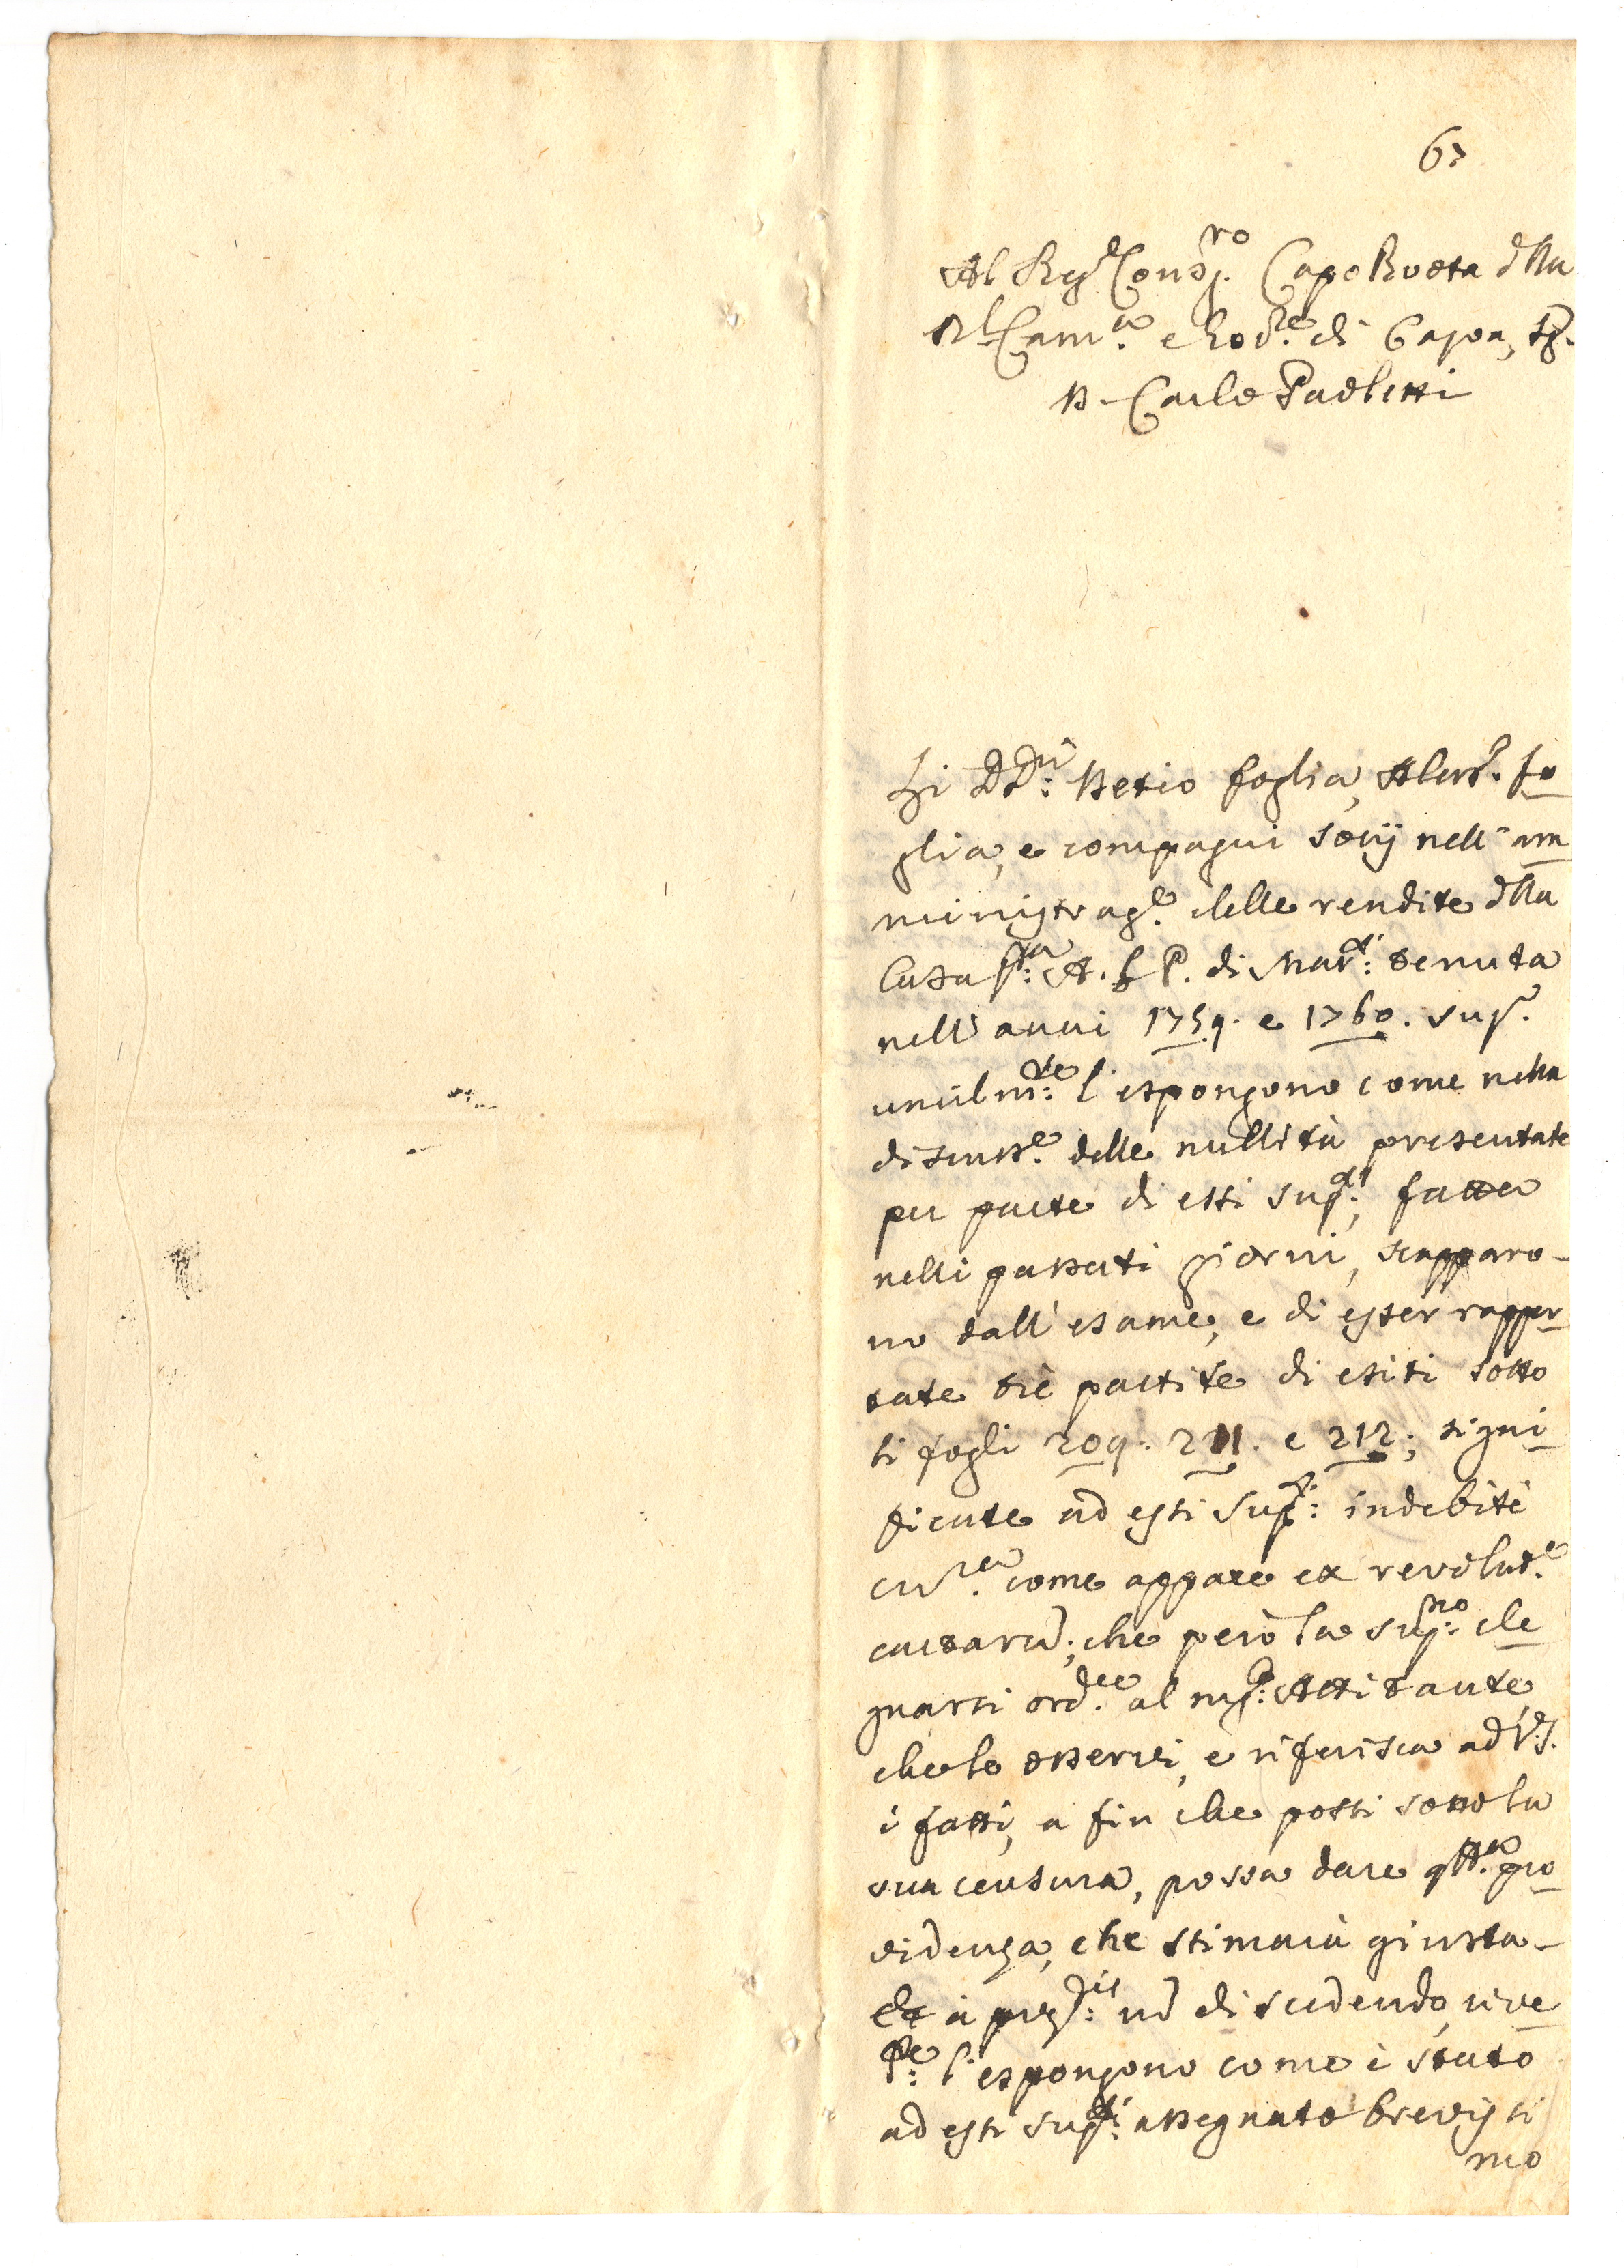 67
Al Reg.° Cons.ro Capo Ruota d'lla
Rl Cam.a e Gov.re di Capoa, Sg.r
D. Carlo Paoletti
Li DD.ri Decio foglia, Aless.° fo
glia, e compagni socij nell'am
ministraz.e delle rendite d'lla
Casa S.ta A. G. P. di Mad.i tenuta
nell'anni 1759. e 1760. sup.
umilm.te l'espongono come nella
discuss.e delle nullità presentate
per parte di essi sup.ti, fatta
nelli passati giorni, scapparo-
no dall'esame, e di esser rappor
tate trè partite di esiti sotto
li fogli 209. 211. e 212; signi
ficate ad essi Sup.ti: indebite
come appare ex revolut.e
cartarum; che però la sup.no de
gnarsi ord.ee al mag.co Attitante
che le osservi, e riferisca ad V.S.
i fatti, a fin che posti sotto la
sua censura, possa dare q.lla pro
videnza, che stimarà giusta-
Et à pred.is nõ discedendo, rive
r.te l'espongono come è stato
ad essi sup.ti assegnato brevissi
mo